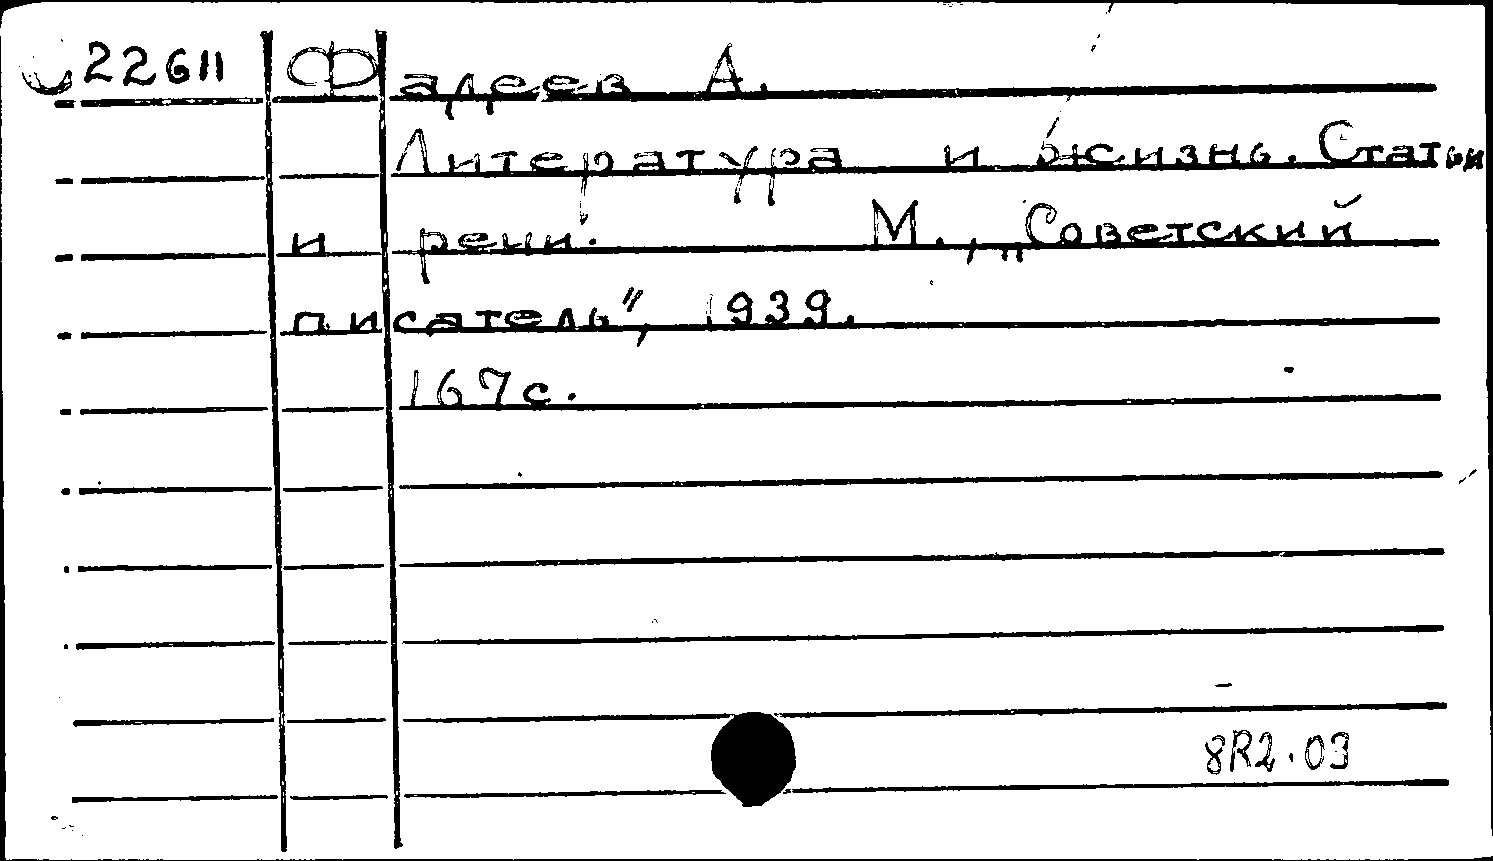 22611 Фадеев А.
Литература и жизнь. Статьи
и речи. М., „Советский
писатель", 1939.
167с.
8R2.03